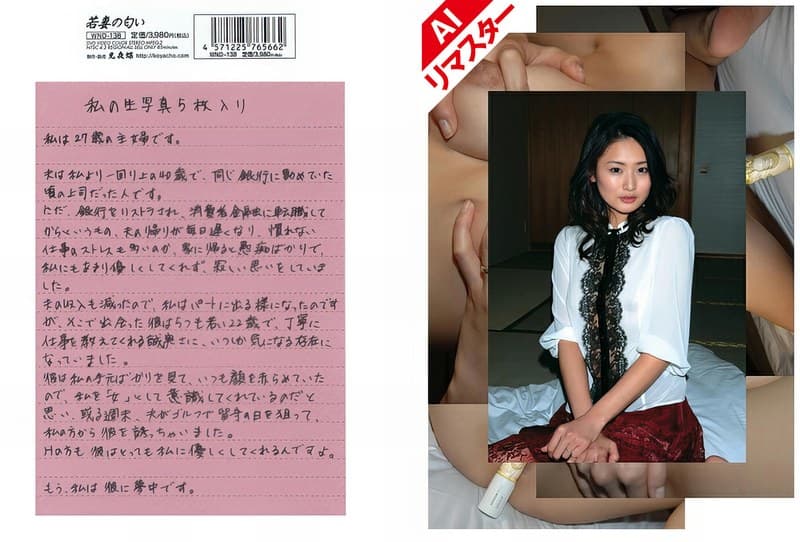 若妻の匂い
WND-138
定価/3,980円(税込)
DVD VIDEO COLOR STEREO MPEG-2
http://koyacho.com
4 571225 765662
WND-138 定価/3,980円(税込)
私の生写真5枚入り
私は27歳の主婦です。
夫は私より一回り上の40歳で、同じ銀行に勤めていた
頃の上司だった人です。
ただ、銀行をリストラされ、消費者金融に転職して
からというもの、夫の帰りが毎日遅くなり、慣れない
仕事のストレスも多いのか、家に帰ると愚痴ばかりで、
私にもあまり優しくしてくれず、寂しい思いをしていま
した。
夫の収入も減ったので、私はパートに出る様になったのです
が、そこで出会った彼は5つも若い22歳で、丁寧に
仕事を教えてくれる誠実さに、いつしか気になる存在に
なっていました。
彼は私の手元ばかりを見て、いつも顔を赤らめていた
ので、私を「女」として意識してくれているのだと
思い、或る週末、夫がゴルフで留守の日を狙って、
私の方から彼を誘っちゃいました。
Hの方も彼はとっても私に優しくしてくれるんですよ。
もう、私は彼に夢中です。
AI
リマスター